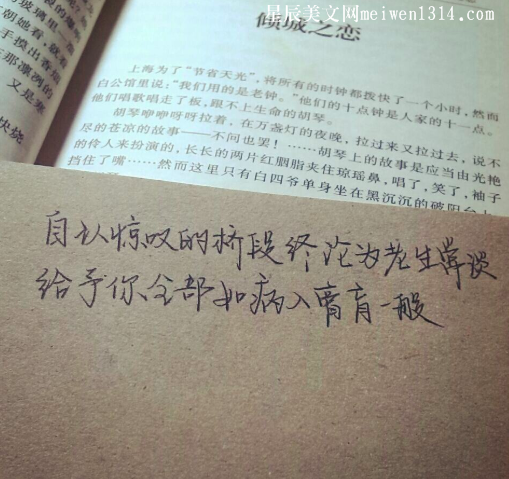 星辰美文网meiwen1314.com
倾城之恋
上海为了“节省天光”，将所有的时钟都拨快了一个小时，然而
白公馆里说：“我们用的是老钟。”他们的十点钟是人家的十一点。
他们唱歌唱走了板，跟不上生命的胡琴。
胡琴咿咿呀呀拉着，在万盏灯的夜晚，拉过来又拉过去，说不
尽的苍凉的故事——不问也罢！……胡琴上的故事是应当由光艳
的伶人来扮演的，长长的两片红胭脂夹住琼瑶鼻，唱了，笑了，袖子
挡住了嘴……然而这里只有白四爷单身坐在黑沉沉的破阳台上
自认惊叹的桥段终沦为老生常谈
给予你全部如病入膏肓一般